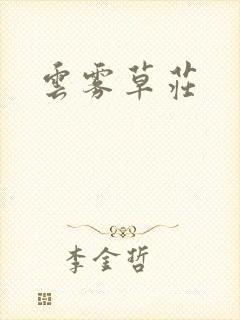 雲霧草莊
李金哲